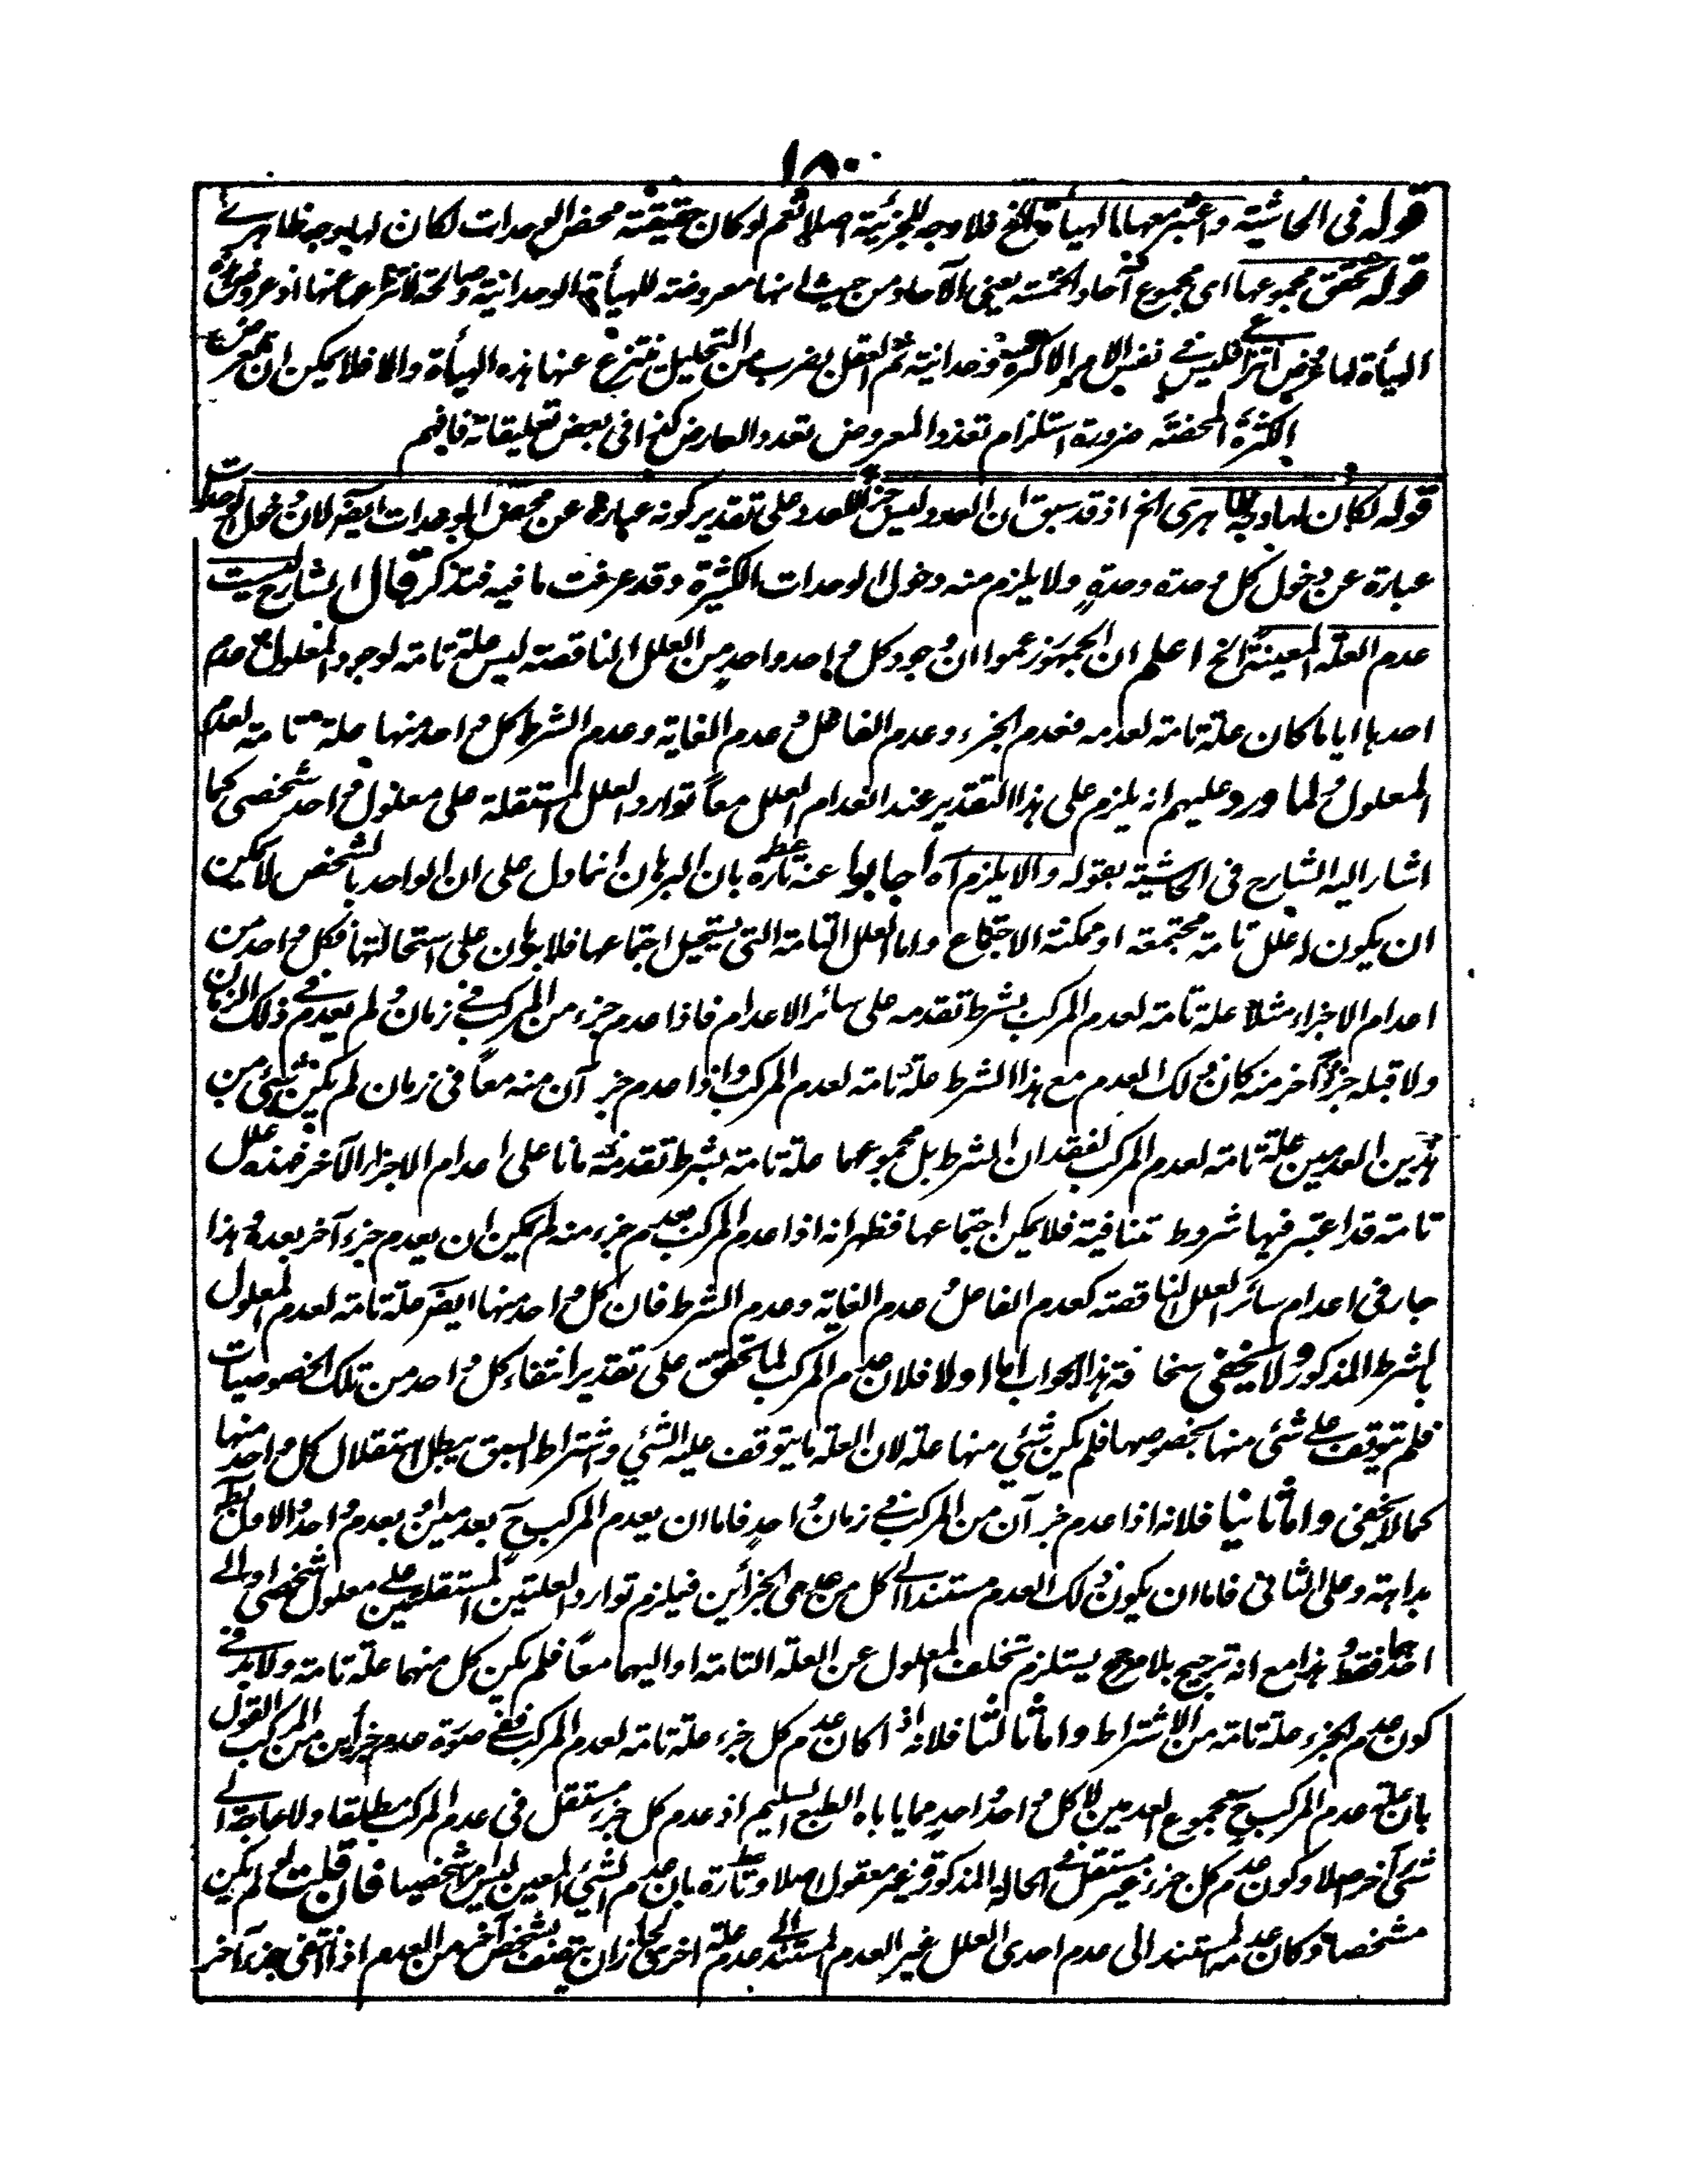 ١٨٠
قوله فى الحاشية واعتبر معها ما الهيأة الخ فلا وجه للجزئية اصلا نعم لو كان حقيقته محض الوحدات لكان لها وجه ظاهرى
قوله تحقق مجموعها اى مجموع آحاد الخمسة يعنى الآحاد من حيث انها معروضة للهيأة الوحدانية وصالحة لانتزاعها عنها اذ عروض
الهيأة لها عروض انتزاعى فليس فى نفس الامر الا كثرة وحدانية ثم العقل بضرب من التحليل ينتزع عنها هذه الهيأة والا فلا يمكن ان تعرض
الكثرة المحضة ضرورة استلزام تعدد المعروض تعدد العارض كذا فى بعض تعليقاته فافهم
قوله لكان لها وجه ظاهرى الخ اذ قد سبق ان العدد ليس جزأ للعدد على تقدير كونه عبارة عن محض الوحدات ايضا لان دخول الوحدات
عبارة عن دخول كل وحدة وحدة ولا يلزم منه دخول الوحدات الكثيرة وقد عرفت ما فيه فتذكر قال الشارح ليست
عدم العلة المعينة الخ اعلم ان الجمهور زعموا ان وجود كل واحد واحد من العلل الناقصة ليس علة تامة لوجود المعلول مع عدم
احدها اياما كان علة تامة لعدمه فعدم الجزء وعدم الفاعل وعدم الغاية وعدم الشرط كل واحد منها علة تامة لعدم
المعلول ولما ورد عليهم انه يلزم على هذا التقدير عند انعدام العلل معاً توارد العلل المستقلة على معلول واحد شخصى كما
اشار اليه الشارح فى الحاشية بقوله والا يلزم آه اجابوا عنه تارة بان البرهان انما دل على ان الواحد بالشخص لا يمكن
ان يكون له علل تامة مجتمعة او ممكنة الاجتماع واما العلل التامة التى يستحيل اجتماعها فلا برهان على استحالتها فكل واحد من
اعدام الاجزاء مثلا علة تامة لعدم المركب بشرط تقدمه على سائر الاعدام فاذا عدم جزء من المركب فى زمان ولم يعدم فى ذلك الزمان
ولا قبله جزء آخر منه كان ذلك العدم مع هذا الشرط علة تامة لعدم المركب واذا عدم جزآن منه معاً فى زمان لم يكن شئ من
هذين العدمين علة تامة لعدم المركب لفقدان الشرط بل مجموعهما علة تامة بشرط تقدمه زمانا على اعدام الاجزاء الآخر فهذه علل
تامة قد اعتبر فيها شروط متنافية فلا يمكن اجتماعها فظهر انه اذا عدم المركب بعدم جزء منه لم يمكن ان يعدم جزء آخر بعده وهذا
جار فى اعدام سائر العلل الناقصة كعدم الفاعل وعدم الغاية وعدم الشرط فان كل واحد منها ايضا علة تامة لعدم المعلول
بالشرط المذكور ولا يخفى سخافة هذا الجواب اما اولا فلان عدم المركب لما تحقق على تقدير انتفاء كل واحد من تلك الخصوصيات
فلم تتوقف على شئ منها بخصوصها فلم يكن شئ منها علة لان العلة ما يتوقف عليه الشئ واشتراط السبق يبطل استقلال كل واحد منها
كما لا يخفى واما ثانيا فلانه اذا عدم جزآن من المركب فى زمان واحد فاما ان يعدم المركب ح بعدمين او بعدم واحد الاول باطل
بداهة وعلى الثانى فاما ان يكون ذلك العدم مستندا الى كل من عدمى الجزأين فيلزم توارد العلتين المستقلتين على معلول شخصى او الى
احدهما فقط وهذا مع انه ترجيح بلا مرجح يستلزم تخلف المعلول عن العلة التامة او اليهما معاً فلم يكن كل منهما علة تامة ولا بد فى
كون عدم الجزء علة تامة من الاشتراط واما ثالثا فلانه اذا كان عدم كل جزء علة تامة لعدم المركب ففى صورة عدم جزأين من المركب القول
بان علة عدم المركب ح مجموع العدمين لا كل واحد واحد مما يأباه الطبع السليم اذ عدم كل جزء مستقل فى عدم المركب مطلقا ولا حاجة الى
شئ آخر اصلا وكون عدم كل جزء غير مستقل فى الحالة المذكورة غير معقول اصلا وتارة بان عدم الشئ المعين ليس امرا شخصيا فان قلت لو لم يكن
مشخصا وكان عدمه المستند الى عدم احدى العلل غير العدم المستند الى عدم علة اخرى لجاز ان يتصف بشخص آخر من العدم اذا انتفى جزء آخر